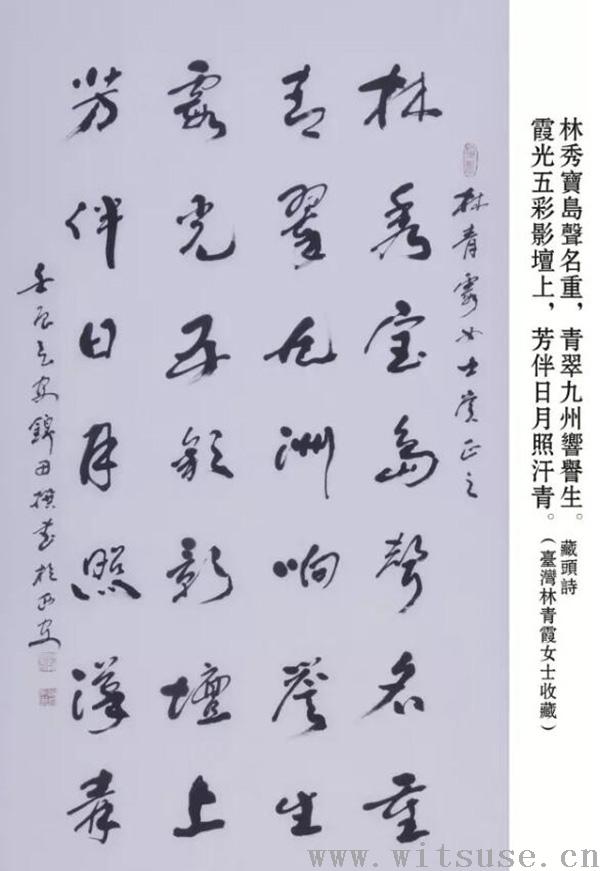 林秀寶島聲名重，青翠九州響譽生。
霞光五彩影壇上，芳伴日月照汗青。
藏頭詩
（臺灣林青霞女士收藏）
林青霞女士賞正之
林秀宝島聲名重
青翠九洲响譽生
霞光五彩影壇上
芳伴日月照漢青
壬辰 錦田撰书於西安
www.witsuse.cn